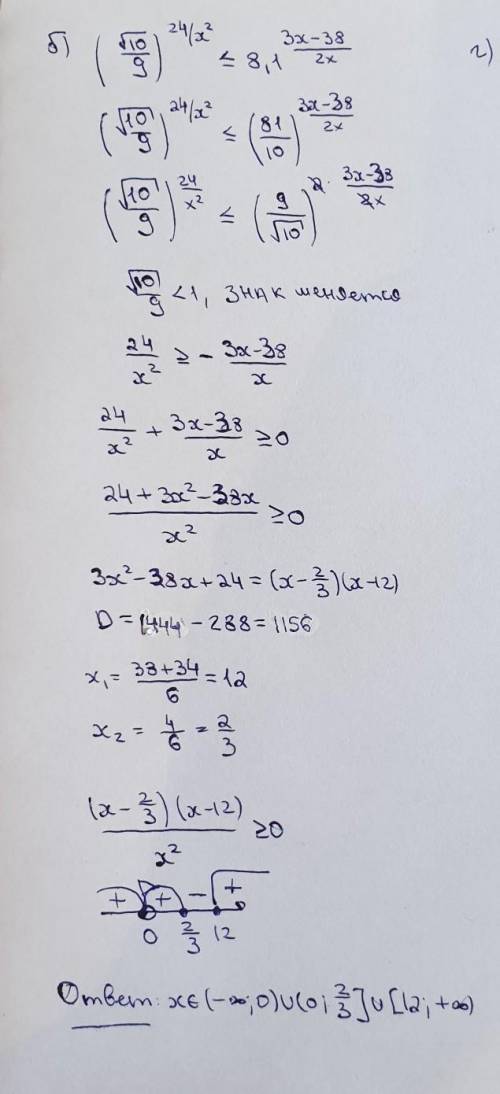 б) (√10/9)^24/x² ≤ 8,1^(3x-38)/2x г)
(√10/9)^24/x² ≤ (81/10)^(3x-38)/2x
(√10/9)^24/x² ≤ (9/√10)^2·(3x-38)/2x
√10/9 <1, знак меняется
24/x² ≥ - (3x-38)/x
24/x² + (3x-38)/x ≥0
(24+3x²-38x)/x² ≥0
3x²-38x+24=(x-2/3)(x-12)
D=1444-288=1156
x₁=(38+34)/6=12
x₂=4/6=2/3
(x-2/3)(x-12)/x² ≥0
+ + - +
0 2/3 12
Ответ: x∈(-∞;0)∪(0;2/3]∪[12;+∞)